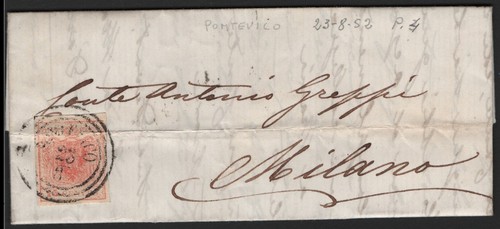 PONTEVICO 23-8-52 P.
Conte Antonio Greppi
Milano